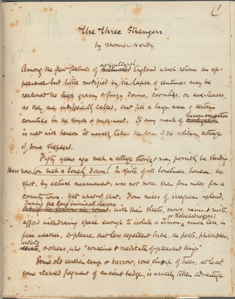 The Three Strangers
by Thomas Hardy.
Among the few features of agricultural England which retain an ap-
pearance but little modified by the lapse of centuries may be
reckoned the high grassy & furzy downs, coombs, or ewe-leases,
as they are indifferently called, that fill a large area of certain
counties in the south & south-west. If any mark of human occupation
is met with hereon it usually takes the form of the solitary cottage
of some shepherd.
Fifty years ago such a lonely cottage stood
on such a down
In spite of its loneliness, however, the
spot, by actual measurement, was not more than miles from a
county-town. Yet what of that.
miles of irregular upland,
during the long inimical seasons
with their sleets, snows, rains & mists,
afford withdrawing space enough to isolate a Timon or a Nebuchadnezzar; much less, in
fair weather, to please that less repellent tribe, the poets, philosophers,
artists
& others, who "conceive & meditate of pleasant things."
Some old earthen camp or barrow, some clump of trees, at least
some starved fragment of ancient hedge, is usually taken advantage